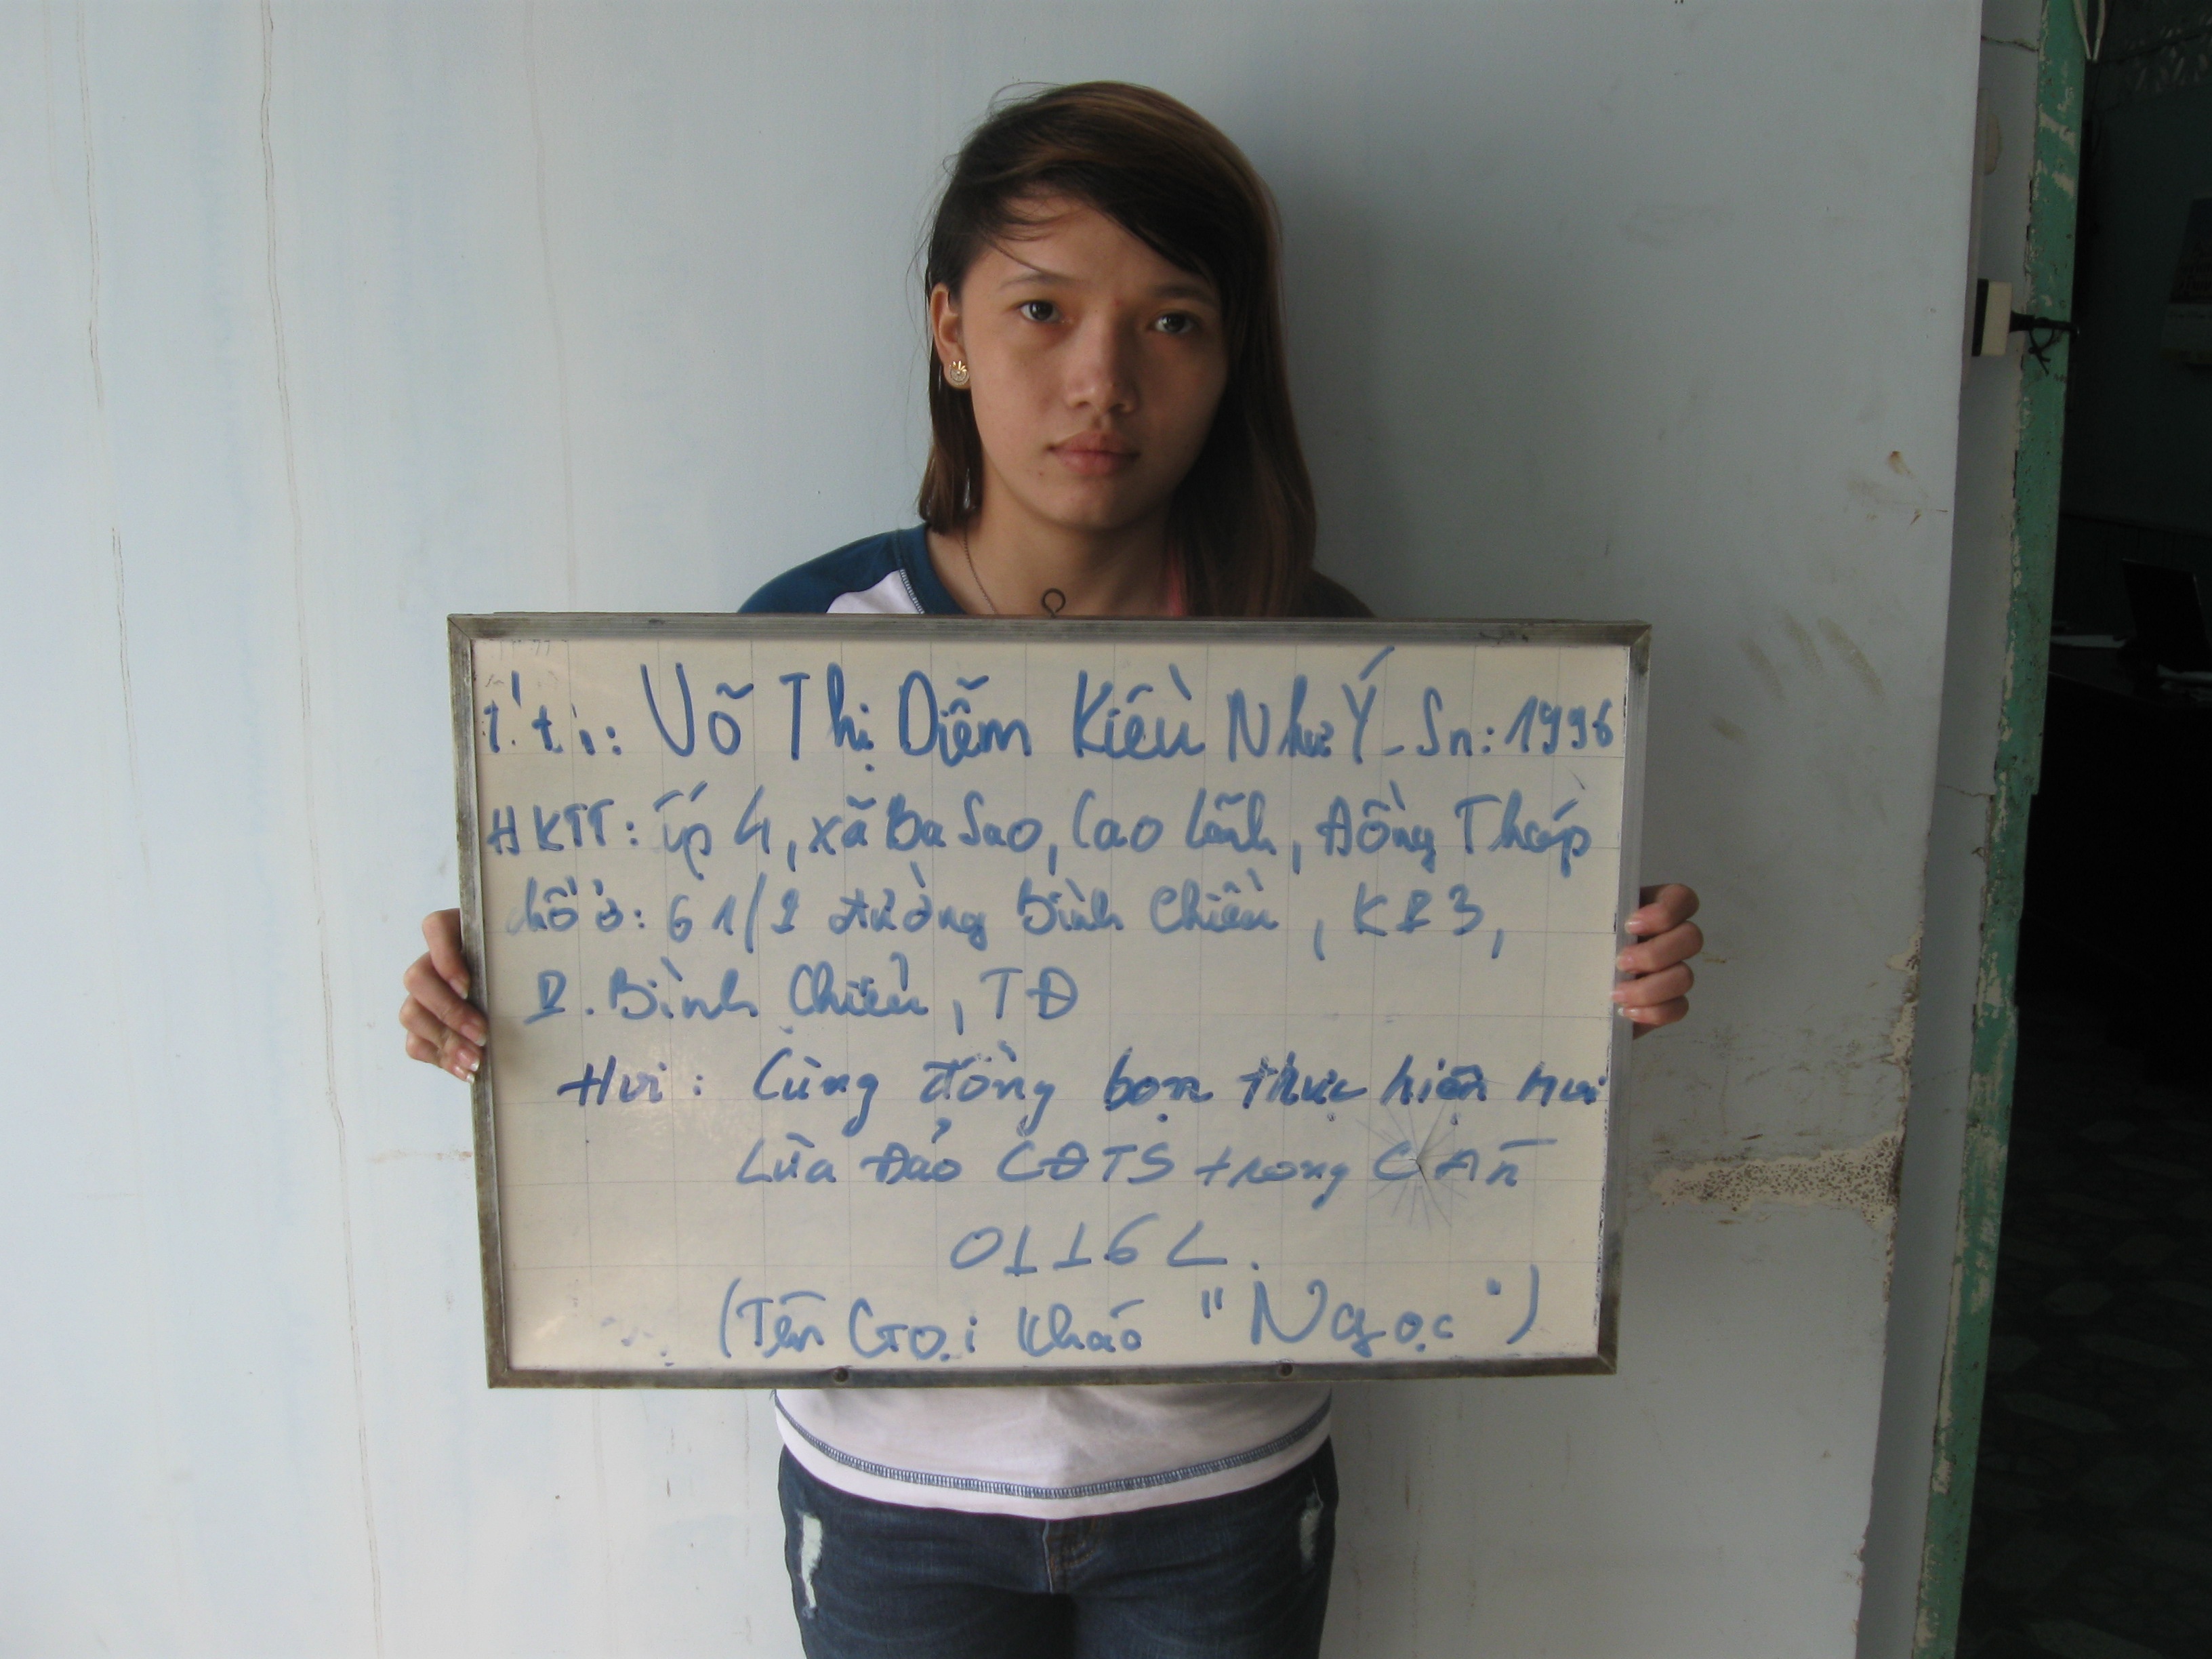 Võ Thị Diễm Kiều Như Ý - Sn: 1996
HKTT: Ấp 4, xã Ba Sao, Cao Lãnh, Đồng Tháp
chỗ ở: 61/2 đường Bình Chiểu, KP3,
P. Bình Chiểu, TĐ
Hvi: Cùng đồng bọn thực hiện hvi
Lừa Đảo CĐTS trong CAn
(Tên Gọi khác "Ngọc")